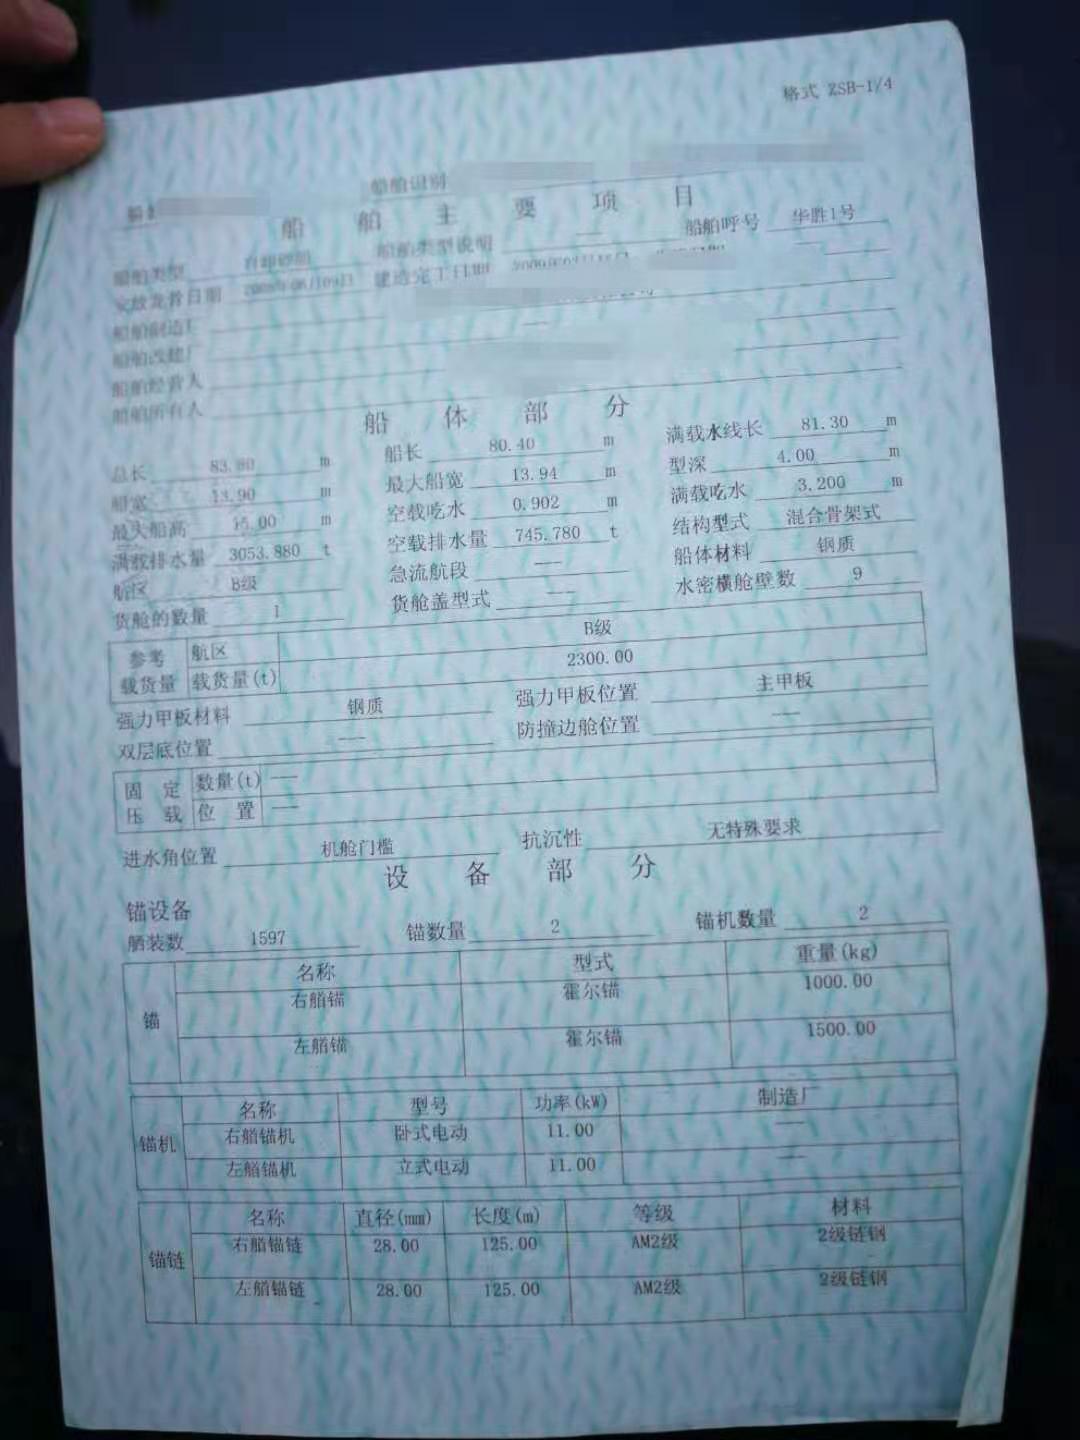 格式 ZSB-1/4
船舶识别
船舶主要项目
船舶类型 自卸砂船 船舶类型说明 —— 船舶呼号 华胜1号
安放龙骨日期 建造完工日期
船舶制造厂
船舶改建厂 ——
船舶经营人
船舶所有人
船体部分
总长 83.80 m 船长 80.40 m 满载水线长 81.30 m
船宽 13.90 m 最大船宽 13.94 m 型深 4.00 m
最大船高 15.00 m 空载吃水 0.902 m 满载吃水 3.200 m
满载排水量 3053.880 t 空载排水量 745.780 t 结构型式 混合骨架式
航区 B级 急流航段 —— 船体材料 钢质
货舱的数量 1 货舱盖型式 —— 水密横舱壁数 9
参考载货量 航区 B级
载货量(t) 2300.00
强力甲板材料 钢质 强力甲板位置 主甲板
双层底位置 —— 防撞边舱位置 ——
固定压载 数量(t) ——
位置 ——
进水角位置 机舱门槛 抗沉性 无特殊要求
设备部分
锚设备
舾装数 1597 锚数量 2 锚机数量 2
锚 名称 型式 重量(kg)
右艏锚 霍尔锚 1000.00
左艏锚 霍尔锚 1500.00
锚机 名称 型号 功率(kW) 制造厂
右艏锚机 卧式电动 11.00 ——
左艏锚机 立式电动 11.00 ——
锚链 名称 直径(mm) 长度(m) 等级 材料
右艏锚链 28.00 125.00 AM2级 2级链钢
左艏锚链 28.00 125.00 AM2级 2级链钢